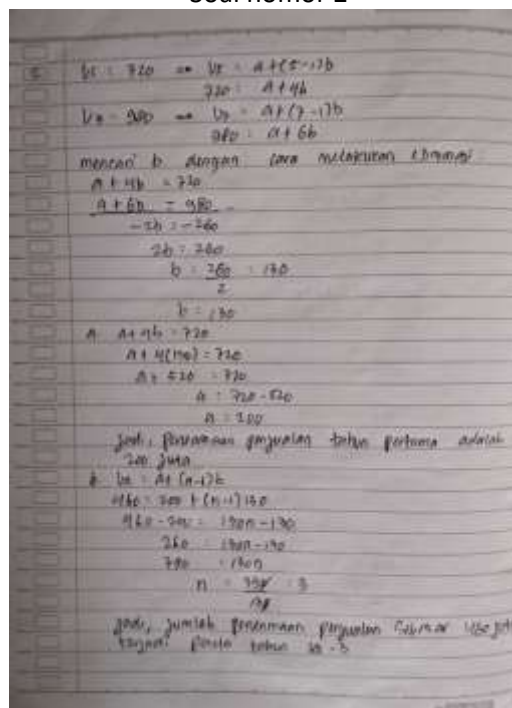 soal nomor 2
U5 = 720 → U5 = A+(5-1)b
720 = A+4b
U7 = 980 → U7 = A+(7-1)b
980 = A+6b
mencari b dengan cara melakukan eliminasi
A+4b = 720
A+6b = 980 -
-2b = -260
2b = 260
b = 260 = 130
2
b = 130
A. A+4b = 720
A+4(130) = 720
A+ 520 = 720
A = 720-520
A = 200
jadi, penerimaan penjualan tahun pertama adalah
200 juta
b. Un = A+(n-1)b
460 = 200 + (n-1)130
460-200 = 130n-130
260 = 130n-130
390 = 130n
n = = 3
jadi, jumlah penerimaan penjualan sebesar 460
terjadi pada tahun ke-3